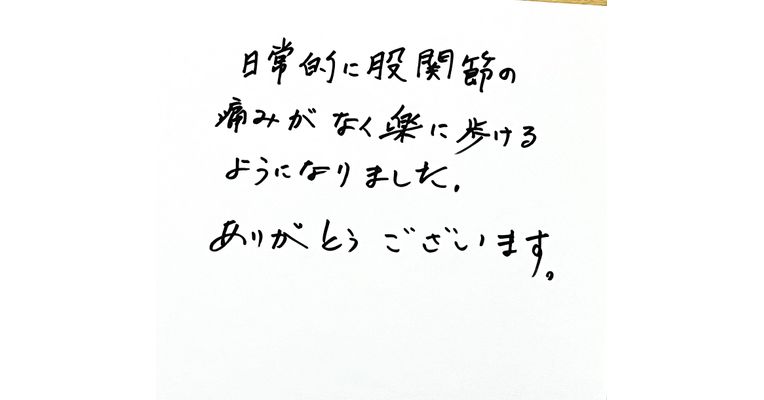 日常的に股関節の
痛みがなく楽に歩ける
ようになりました.
ありがとうございます。